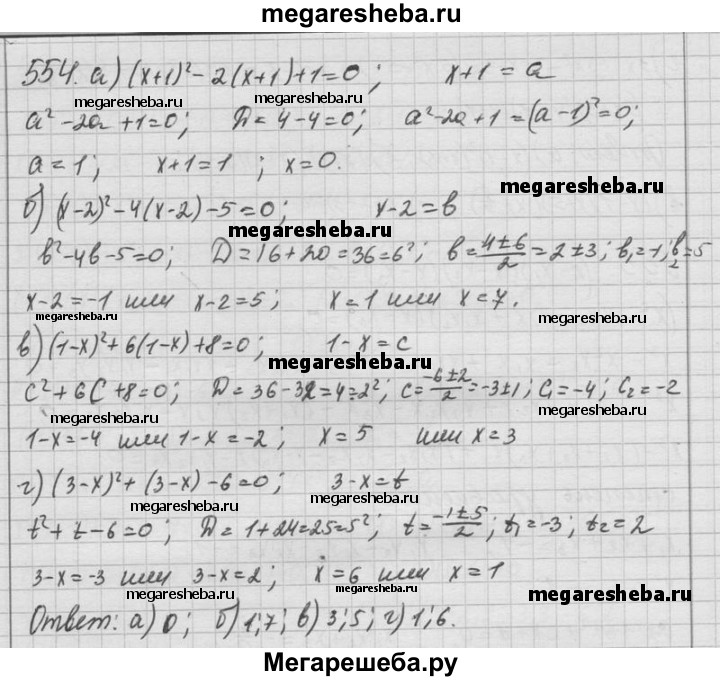 megaresheba.ru
554. а) (x+1)² - 2(x+1)+1=0; x+1 = a
megaresheba.ru megaresheba.ru
a² - 2a + 1 = 0; D = 4 - 4 = 0; a² - 2a + 1 = (a - 1)² = 0;
a = 1; x+1 = 1; x = 0.
megaresheba.ru
б) (x-2)² - 4(x-2) - 5 = 0; x - 2 = b
megaresheba.ru
b² - 4b - 5 = 0; D = 16 + 20 = 36 = 6²; b = (4±6)/2 = 2 ± 3; b₁ = -1; b₂ = 5
x - 2 = -1 или x - 2 = 5; x = 1 или x = 7.
megaresheba.ru megaresheba.ru
в) (1-x)² + 6(1-x) + 8 = 0; 1 - x = c
megaresheba.ru
c² + 6c + 8 = 0; D = 36 - 32 = 4 = 2²; c = (-6±2)/2 = -3 ± 1; c₁ = -4; c₂ = -2
megaresheba.ru megaresheba.ru
1 - x = -4 или 1 - x = -2; x = 5 или x = 3
г) (3-x)² + (3-x) - 6 = 0; 3 - x = t
megaresheba.ru
t² + t - 6 = 0; D = 1 + 24 = 25 = 5²; t = (-1±5)/2; t₁ = -3; t₂ = 2
3 - x = -3 или 3 - x = 2; x = 6 или x = 1
megaresheba.ru megaresheba.ru
megaresheba.ru
Ответ: а) 0; б) 1; 7; в) 3; 5; г) 1; 6.
Мегарешеба.ру